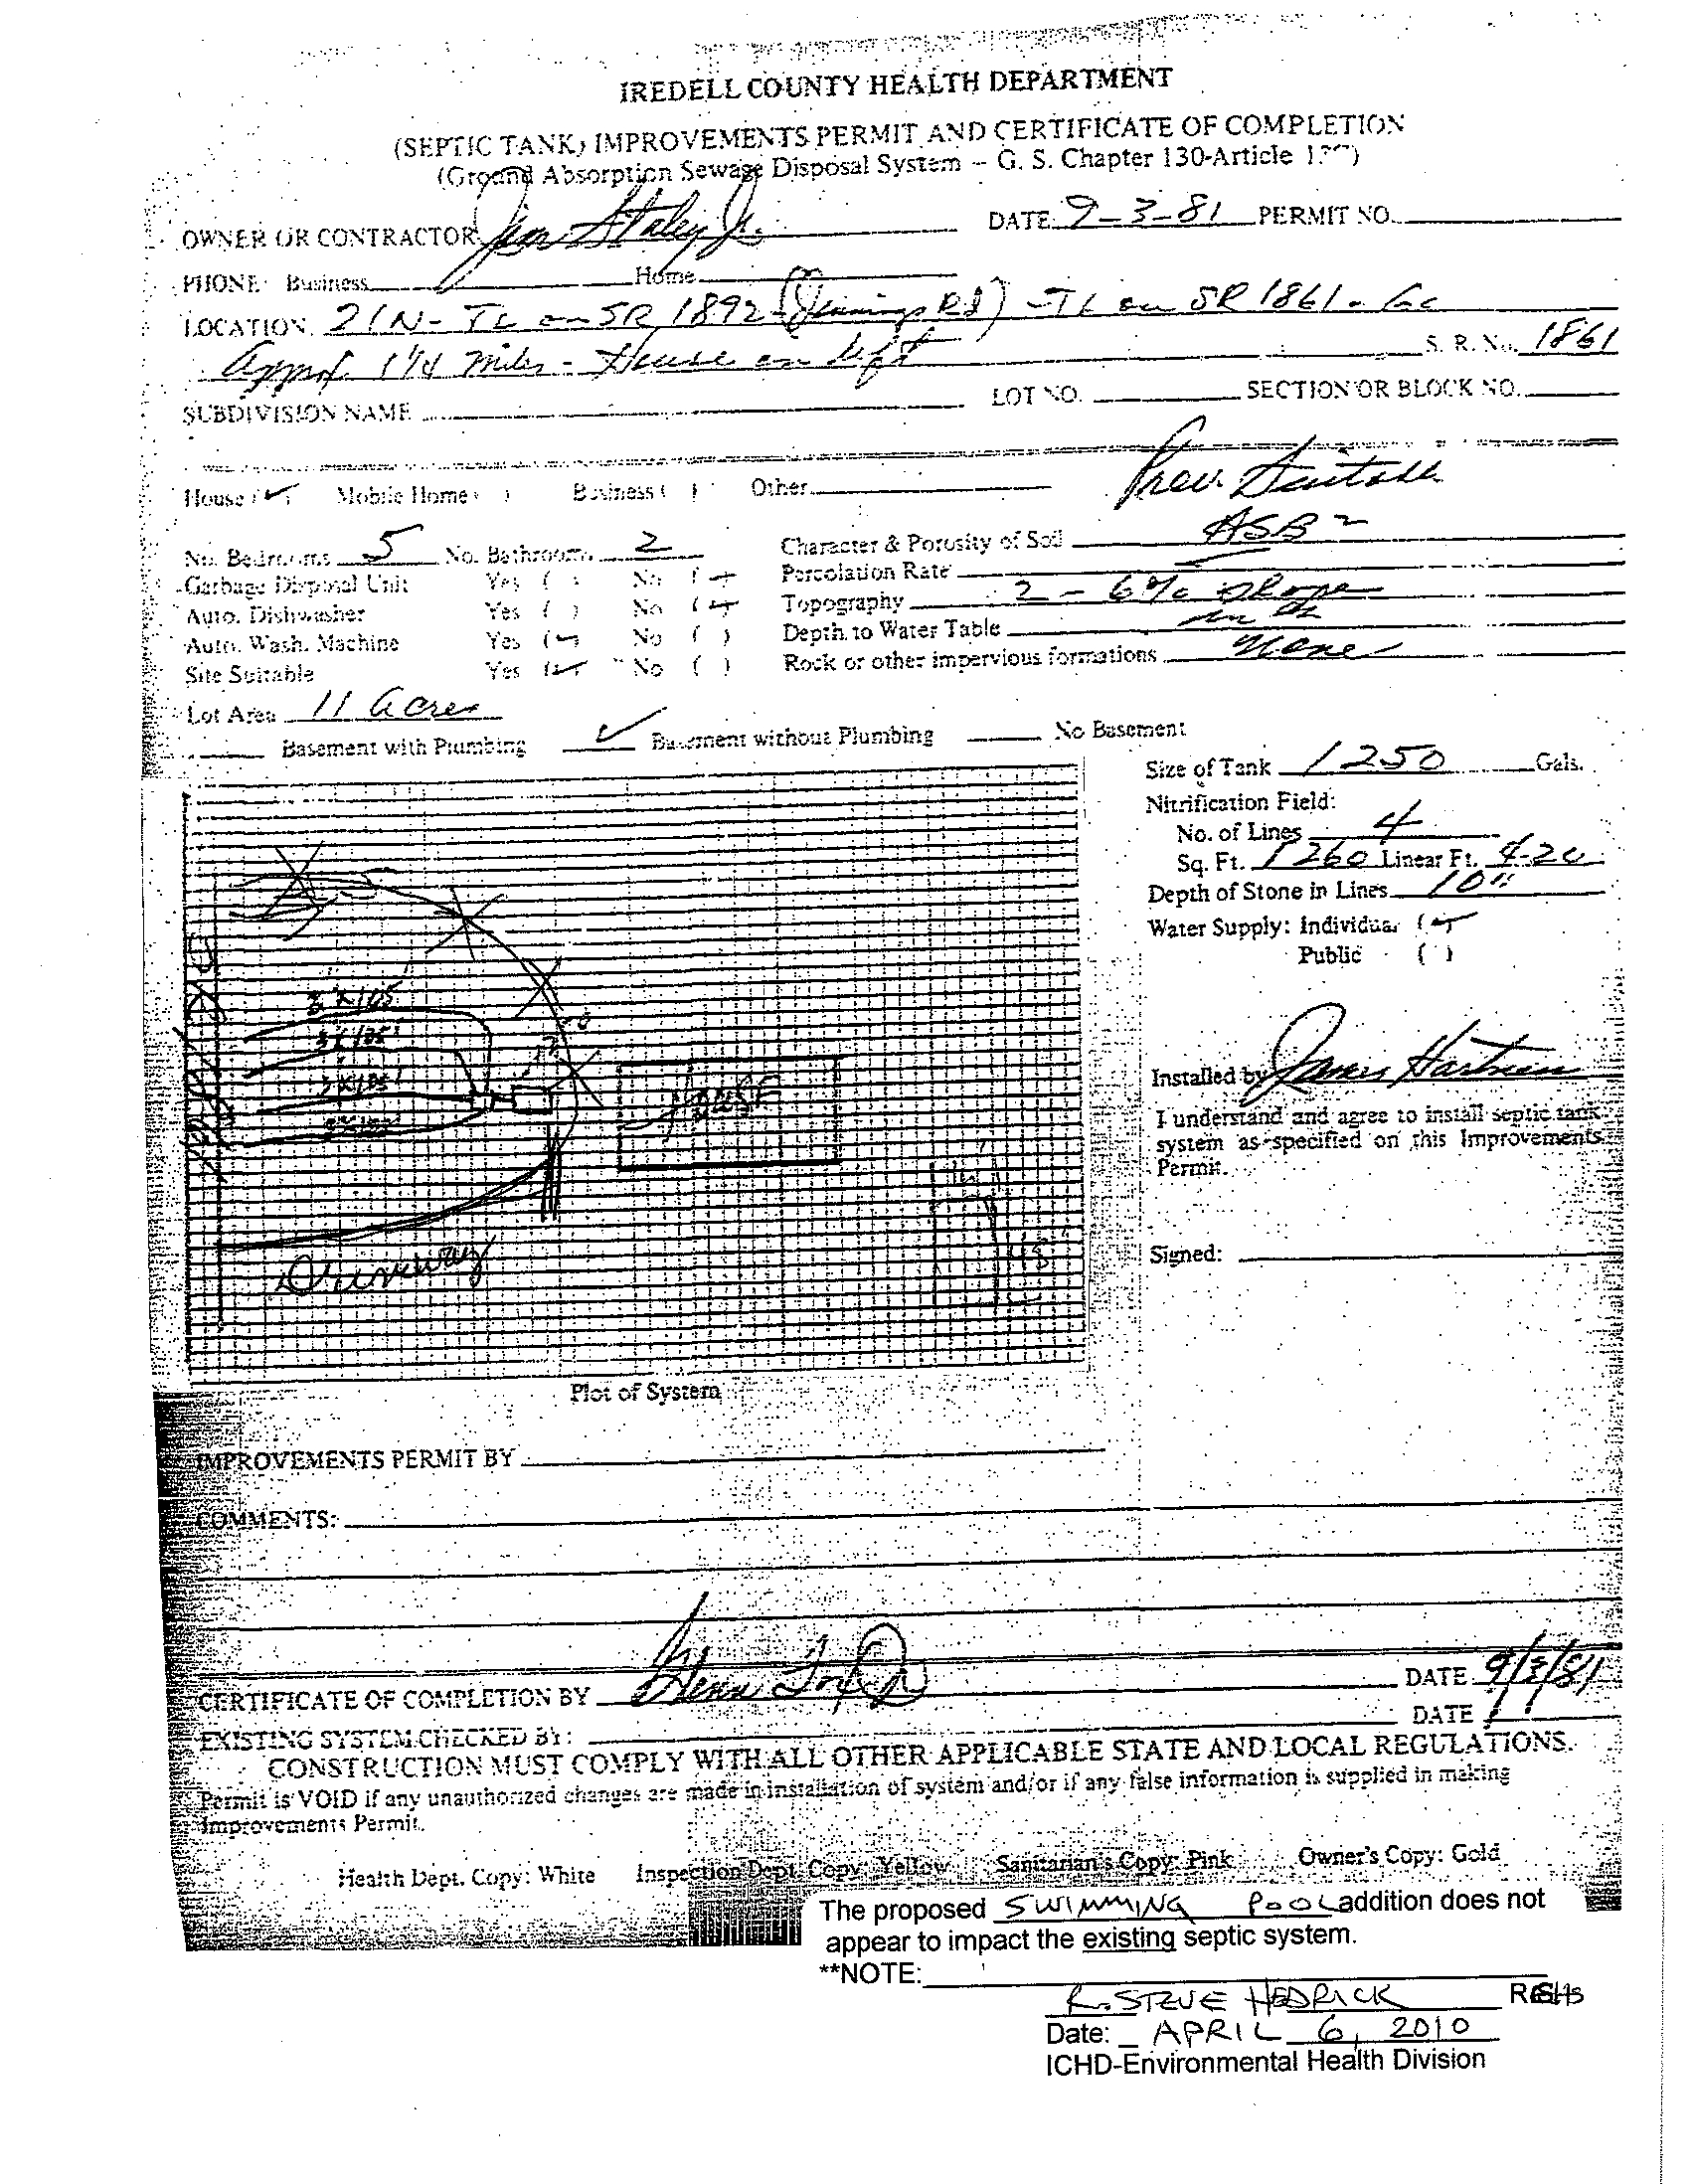 IREDELL COUNTY HEALTH DEPARTMENT
(SEPTIC TANK) IMPROVEMENTS PERMIT AND CERTIFICATE OF COMPLETION
(Ground Absorption Sewage Disposal System -- G. S. Chapter 130-Article
OWNER OR CONTRACTOR Jim Staley Jr. DATE 9-3-81 PERMIT NO.
PHONE: Business Home
LOCATION 21N - TL on SR 1892 (Jennings Rd) - TL on SR 1861 - Go
approx. 1 1/4 miles - House on left S. R. No. 1861
SUBDIVISION NAME LOT NO. SECTION OR BLOCK NO.
Prov. Suitable
House (✓) Mobile Home ( ) Business ( ) Other
No. Bedrooms 5 No. Bathrooms 2 Character & Porosity of Soil
Garbage Disposal Unit Yes ( ) No (✓) Percolation Rate
Auto. Dishwasher Yes ( ) No (✓) Topography 2 - 6% slope
Auto. Wash. Machine Yes (✓) No ( ) Depth to Water Table
Site Suitable Yes (✓) No ( ) Rock or other impervious formations None
Lot Area 11 acres
Basement with Plumbing ✓ Basement without Plumbing No Basement
Size of Tank 1250 Gals.
Nitrification Field:
No. of Lines 4
Sq. Ft. 1260 Linear Ft. 420
Depth of Stone in Lines 10"
Water Supply: Individual (✓)
Public ( )
3 x 105
3 x 105'
3 x 105'
House
Driveway
Installed by James Hartness
I understand and agree to install septic tank
system as specified on this Improvements
Permit.
Signed:
Plot of System
IMPROVEMENTS PERMIT BY
COMMENTS:
CERTIFICATE OF COMPLETION BY DATE 9/3/81
EXISTING SYSTEM CHECKED BY: DATE
CONSTRUCTION MUST COMPLY WITH ALL OTHER APPLICABLE STATE AND LOCAL REGULATIONS.
Permit is VOID if any unauthorized changes are made in installation of system and/or if any false information is supplied in making
Improvements Permit.
Health Dept. Copy: White Inspection Dept. Copy: Yellow Sanitarian's Copy: Pink Owner's Copy: Gold
The proposed SWIMMING POOL addition does not
appear to impact the existing septic system.
**NOTE:
R. STEVE HEDRICK
Date: APRIL 6, 2010
ICHD-Environmental Health Division